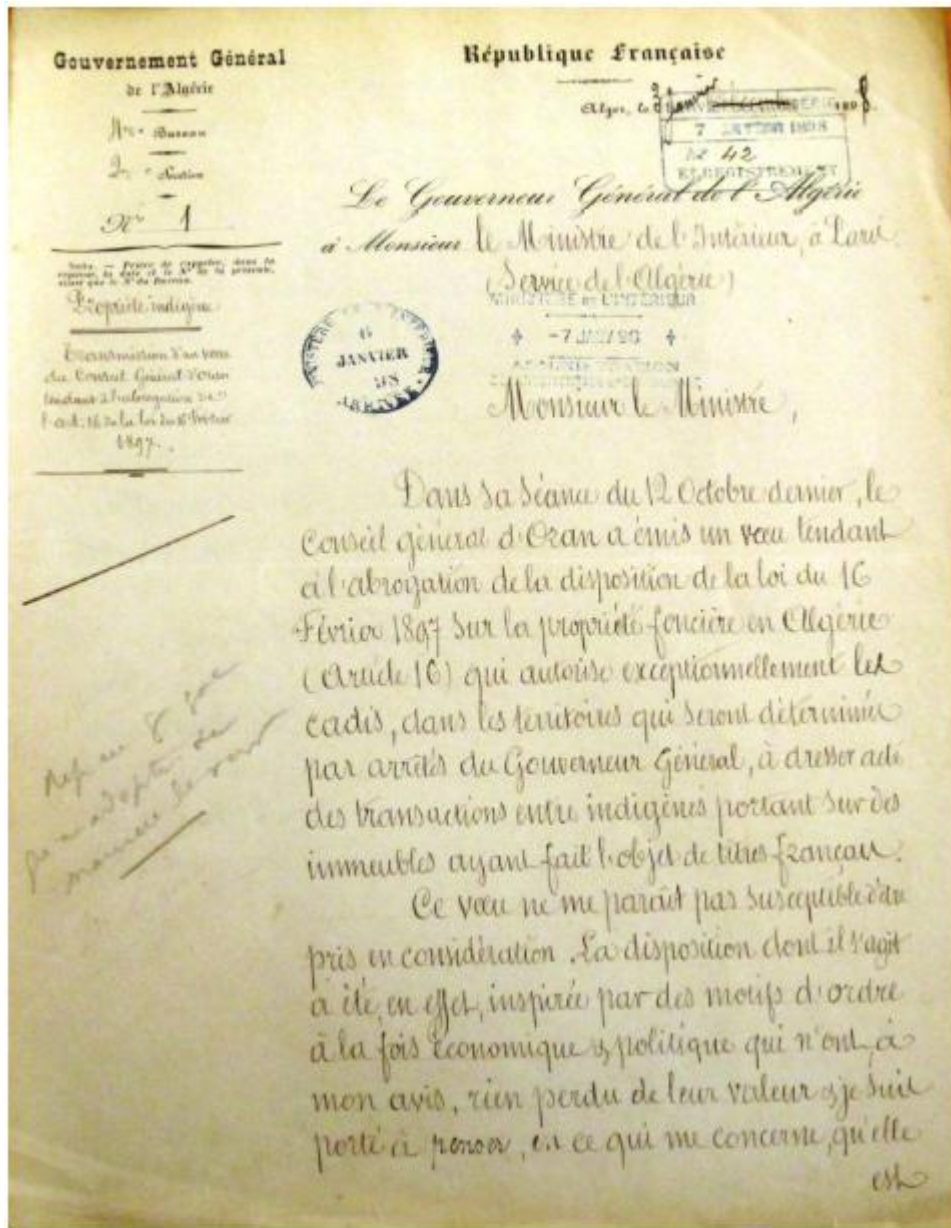 Gouvernement Général
de l'Algérie
4me Bureau
2me Section
No 1
Nota. — Prière de rappeler, dans la
réponse, la date et le No de la présente,
ainsi que le No du Bureau.
Propriété indigène
Transmission d'un vœu
du Conseil Général d'Oran
tendant à l'abrogation de
l'art. 16 de la loi du 16 Février
1897.
République Française
Alger, le 3 Janvier 1898.
7 JANVIER 1898
No 42
ENREGISTREMENT
Le Gouverneur Général de l'Algérie
à Monsieur le Ministre de l'Intérieur, à Paris
(Service de l'Algérie)
MINISTÈRE DE L'INTÉRIEUR
-7 JANV 98
ADMINISTRATION
MINISTÈRE DE L'INTÉRIEUR
6
JANVIER
98
ARRIVÉE
Monsieur le Ministre,
Dans sa séance du 12 Octobre dernier, le
Conseil général d'Oran a émis un vœu tendant
à l'abrogation de la disposition de la loi du 16
Février 1897 sur la propriété foncière en Algérie
(Article 16) qui autorise exceptionnellement les
cadis, dans les territoires qui seront déterminés
par arrêtés du Gouverneur Général, à dresser acte
des transactions entre indigènes portant sur des
immeubles ayant fait l'objet de titres français.
Ce vœu ne me paraît pas susceptible d'être
pris en considération. La disposition dont il s'agit
a été, en effet, inspirée par des motifs d'ordre
à la fois économique & politique qui n'ont, à
mon avis, rien perdu de leur valeur & je suis
porté à penser, en ce qui me concerne, qu'elle
est